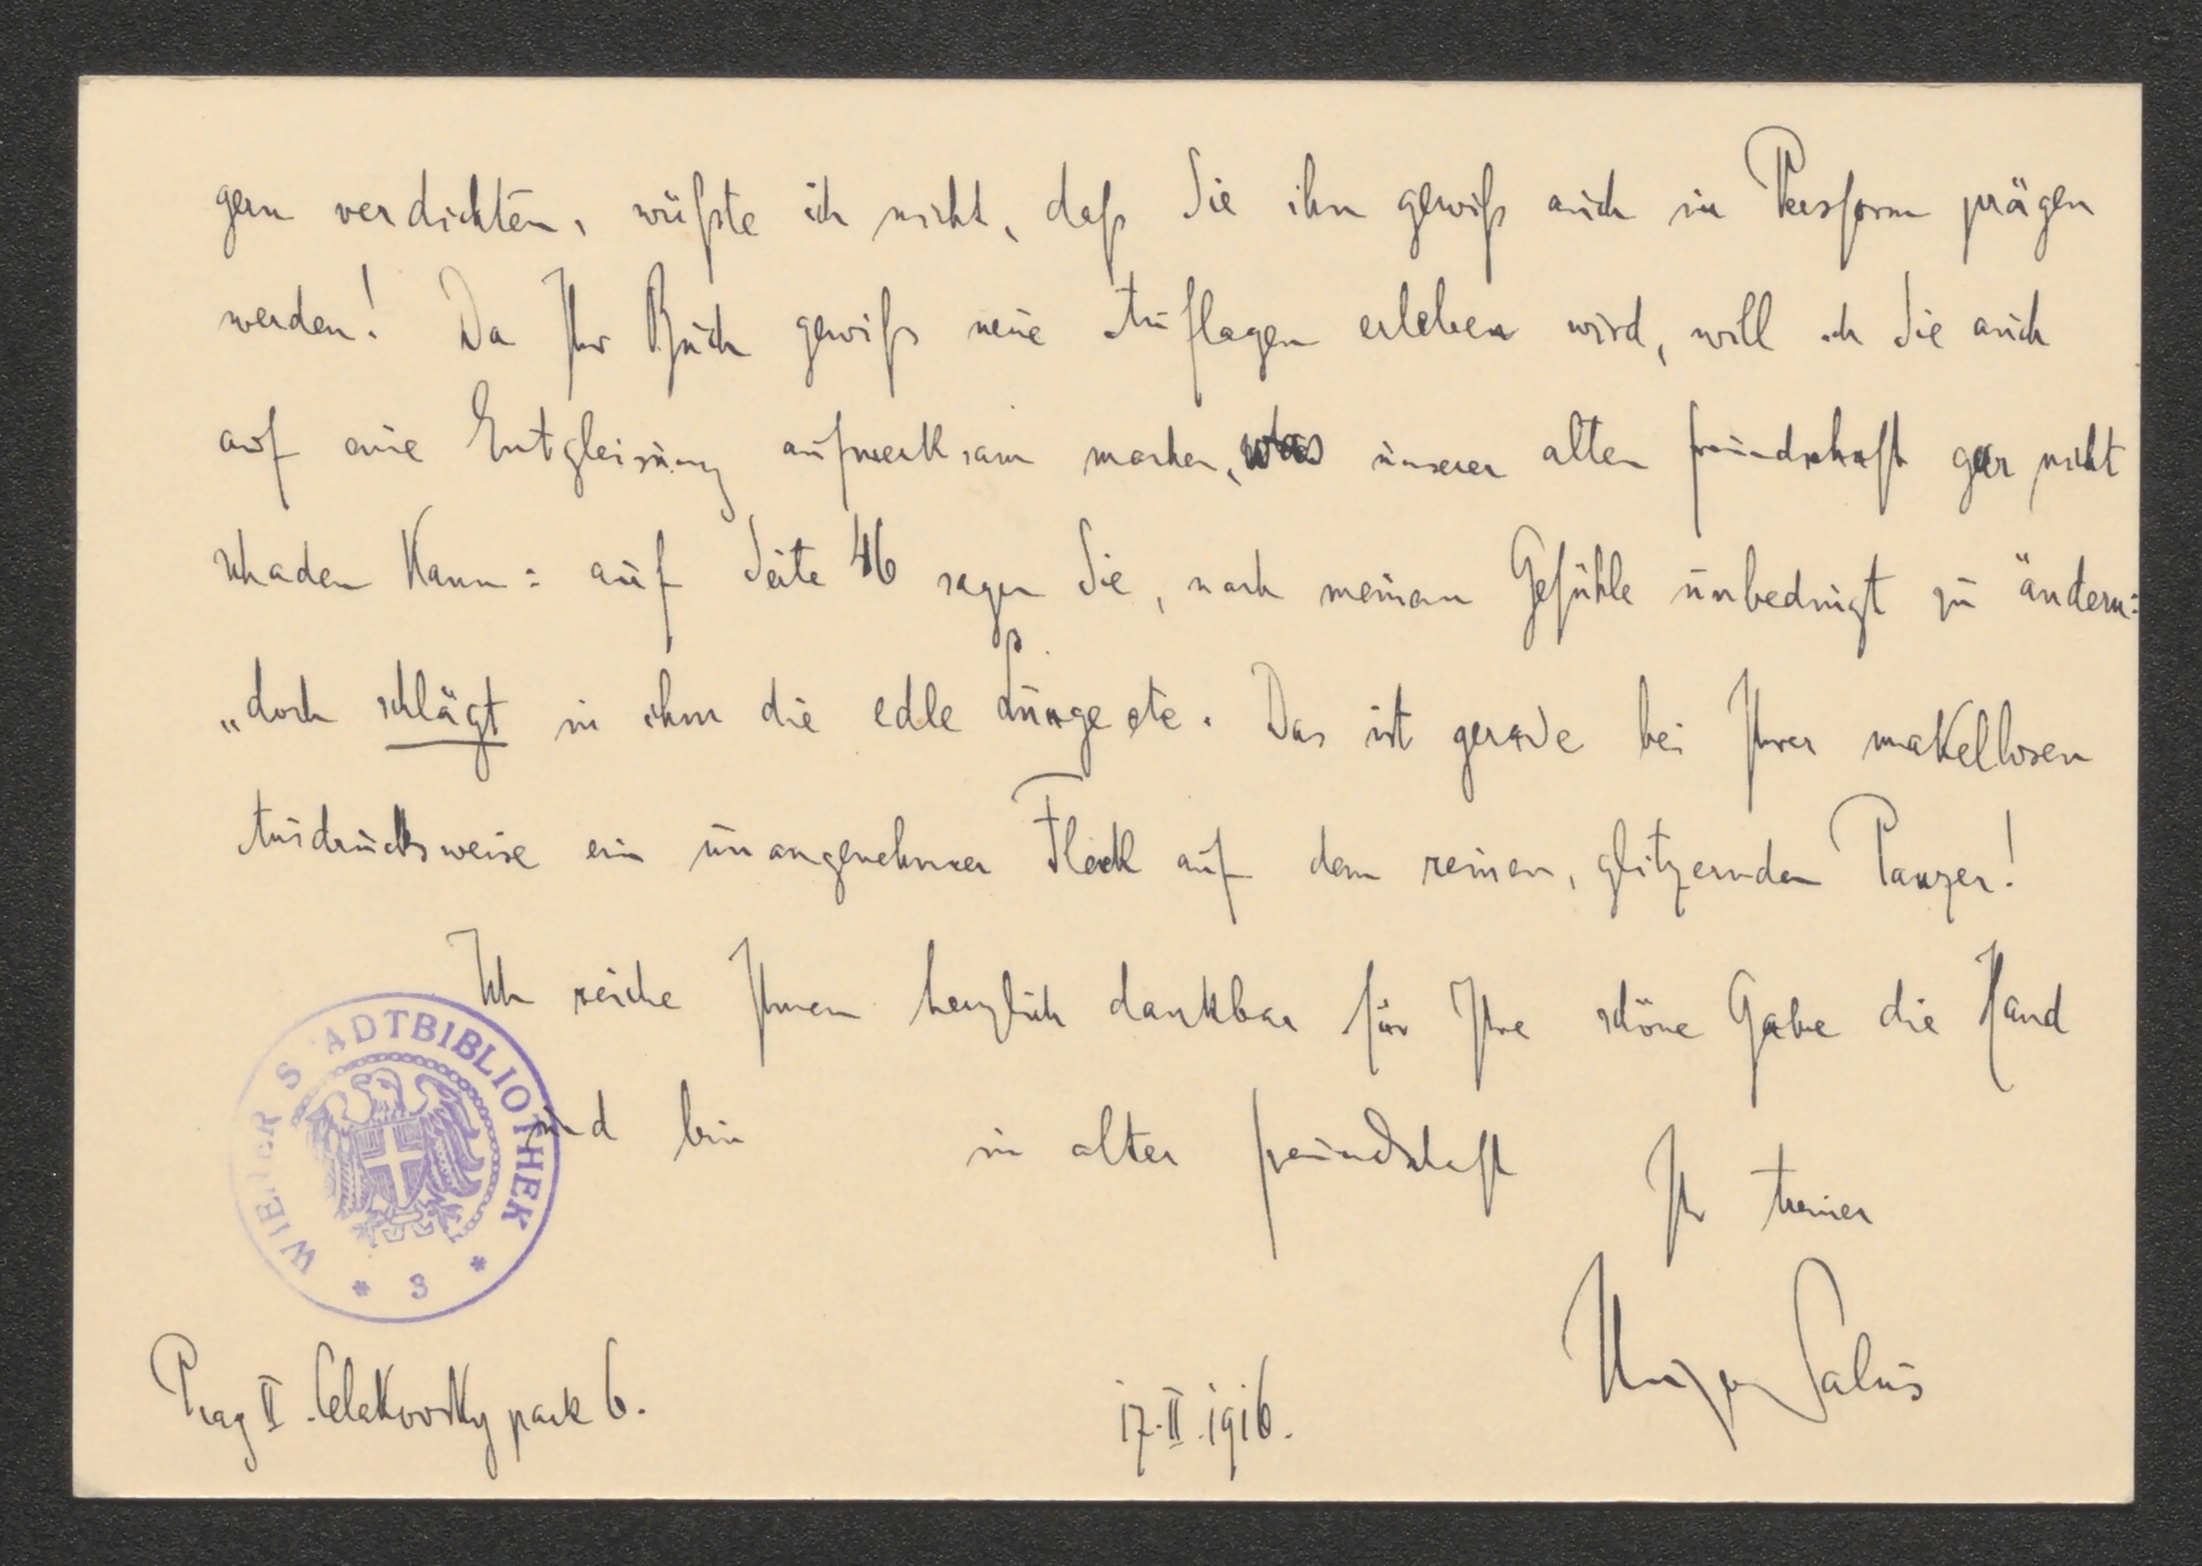 gern verdichten, wüßte ich nicht, daß Sie ihn gewiß auch in Versform prägen
werden! Da Ihr Buch gewiß neue Auflagen erleben wird, will ich Sie auch
auf eine Entgleisung aufmerksam machen, was unserer alten Freundschaft gar nicht
schaden kann: auf Seite 46 sagen Sie, nach meinem Gefühle unbedingt zu ändern:
„doch schlägt in ihm die edle
Das ist gerade bei Ihrer makellosen
Ausdrucksweise ein unangenehmer Fleck auf dem reinen, glitzernden Panzer!
Ich reiche Ihnen herzlich dankbar für Ihre schöne Gabe die Hand
und bin in alter Freundschaft Ihr treuer
Hugo Salus
WIENER STADTBIBLIOTHEK
* 3 *
Prag II. Celakovsky park 6. 17.II.1916.